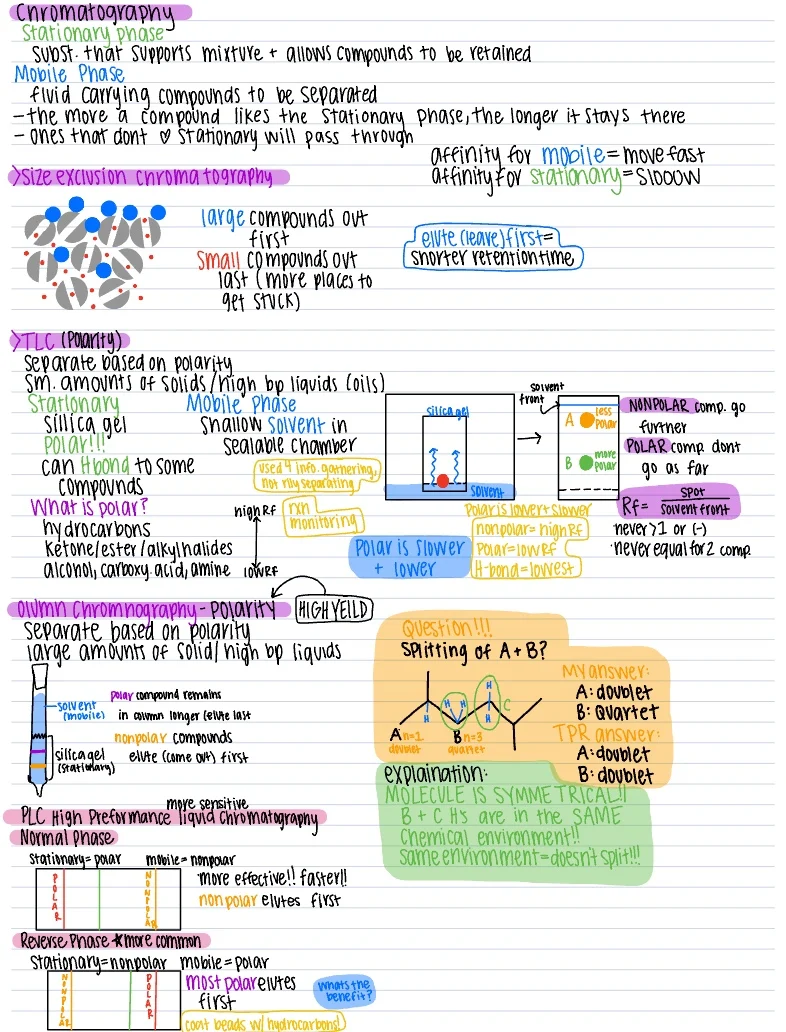 Chromatography
Stationary phase
Subst. that supports mixture + allows compounds to be retained
Mobile Phase
fluid carrying compounds to be separated
- the more a compound likes the stationary phase, the longer it stays there
- ones that dont ♡ stationary will pass through
affinity for mobile = move fast
affinity for stationary = SlOOOW
>Size exclusion chromatography
large compounds out
first
Small compounds out
last (more places to
get stuck)
elute (leave) first =
shorter retention time
>TLC (Polarity)
Separate based on polarity
Sm. amounts of solids/high bp liquids (oils)
Stationary
Sillica gel
Polar!!!
can Hbond to some
compounds
Mobile Phase
Shallow solvent in
sealable chamber
used 4 info. gathering,
not rlly separating
rxn
monitoring
What is polar?
hydrocarbons
ketone/ester/alkylhalides
alcohol, carboxy. acid, amine
high Rf
low Rf
silica gel
solvent
solvent
front
A
less
polar
B
more
polar
NONPOLAR comp. go
further
POLAR comp. dont
go as far
Rf = SPOT
solvent front
never >1 or (-)
never equal for 2 comp.
Polar is slower
+ lower
Polar is lower + slower
nonpolar = high Rf
Polar = low Rf
H-bond = lowest
olumn Chromnography - POLARITY
HIGH YEILD
Separate based on polarity
large amounts of solid/high bp liquids
solvent
(mobile)
silica gel
(stationary)
polar compound remains
in column longer (elute last
nonpolar compounds
elute (come out) first
Question!!!
Splitting of A + B?
H
H
H
H
H
C
A n=1
doublet
B n=3
quartet
My answer:
A: doublet
B: Quartet
TPR answer:
A: doublet
B: doublet
explaination:
MOLECULE IS SYMMETRICAL!!
B + C H's are in the SAME
Chemical environment!!
same environment = doesn't split!!!
more sensitive
PLC High Preformance liquid chromatography
Normal phase
stationary = polar mobile = nonpolar
POLAR
NONPOLAR
more effective!! faster!!
nonpolar elutes first
Reverse Phase *more common
Stationary = nonpolar mobile = polar
NONPOLAR
POLAR
most polar elutes
first
whats the
benefit?
coat beads w/ hydrocarbons!